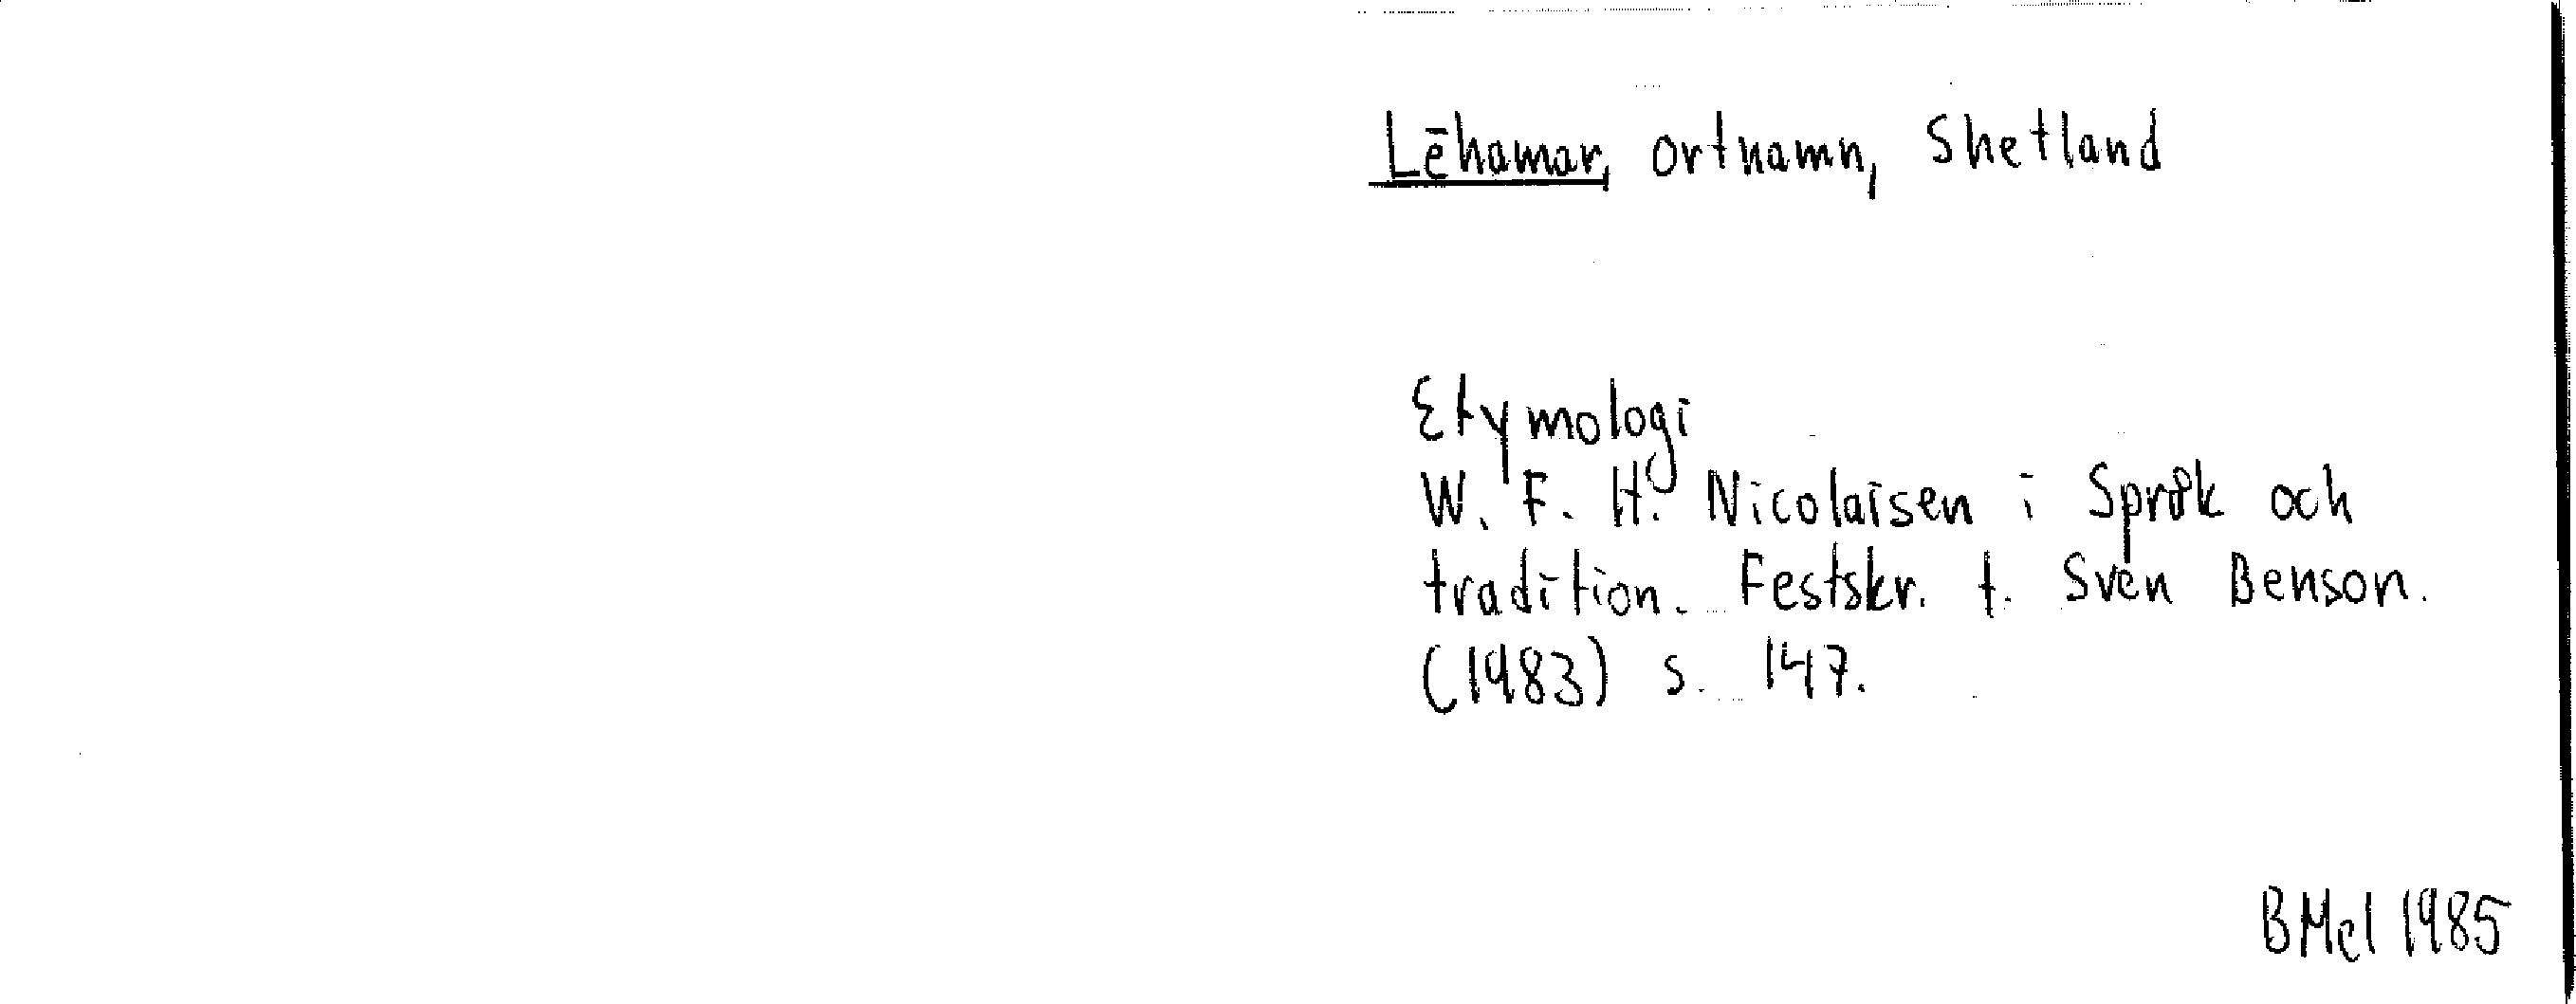 Lēhamar, ortnamn, Shetland
Etymologi
W. F. H. Nicolaisen i Språk och
tradition. Festskr. t. Sven Benson.
(1983) s. 147.
BMel 1985